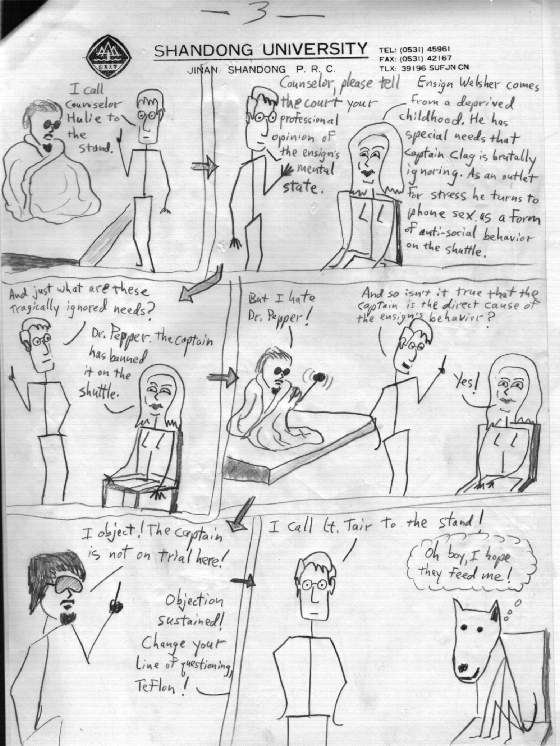 — 3 —
SHANDONG UNIVERSITY
JINAN SHANDONG P. R. C.
TEL: (0531) 45961
FAX: (0531) 42167
TLX: 39196 SUFJN CN
I call
Counselor
Hulie to
the
stand.
Counselor, please tell
the court your
professional
opinion of
the ensign's
mental
state.
Ensign Welsher comes
from a deprived
childhood. He has
special needs that
Captain Clag is brutally
ignoring. As an outlet
for stress he turns to
phone sex as a form
of anti-social behavior
on the shuttle.
And just what are these
tragically ignored needs?
Dr. Pepper. The captain
has banned
it on the
shuttle.
But I hate
Dr. Pepper!
And so isn't it true that the
captain is the direct cause of
the ensign's behavior?
Yes!
I object! The captain
is not on trial here!
Objection
sustained!
Change your
line of questioning,
Teflon!
I call Lt. Tair to the stand!
Oh boy, I hope
they feed me!